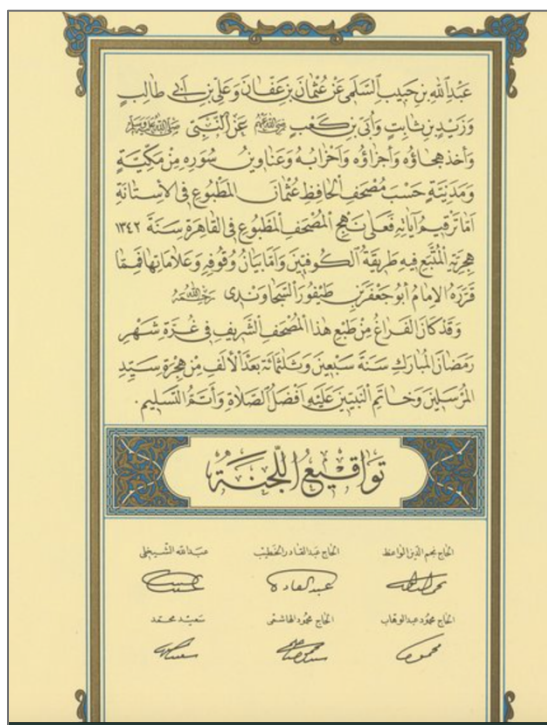 عَبْدِاللهِ بْنِ حَبِيبٍ السُّلَمِيِّ عَنْ عُثْمَانَ بْنِ عَفَّانَ وَعَلِيِّ بْنِ أَبِي طَالِبٍ
وَزَيْدِ بْنِ ثَابِتٍ وَأُبَيِّ بْنِ كَعْبٍ عَنِ النَّبِيِّ ﷺ
وَأُخِذَ هِجَاؤُهُ وَأَجْزَاؤُهُ وَأَحْزَابُهُ وَعَنَاوِينُ سُوَرِهِ مِنْ مَكِّيَّةٍ
وَمَدَنِيَّةٍ حَسَبَ مُصْحَفِ الْحَافِظِ عُثْمَانَ الْمَطْبُوعِ فِي الْآسِتَانَةِ
أَمَّا تَرْقِيمُ آيَاتِهِ فَعَلَى نَهْجِ الْمُصْحَفِ الْمَطْبُوعِ فِي الْقَاهِرَةِ سَنَةَ ١٣٤٢
هِجْرِيَّةِ الْمُتَّبَعِ فِيهِ طَرِيقَةُ الْكُوفِيِّينَ وَأَمَّا بَيَانُ وُقُوفِهِ وَعَلَامَاتِهَا فَمِمَّا
قَرَّرَهُ الْإِمَامُ أَبُو جَعْفَرِ بْنِ طَيْفُورٍ السَّجَاوَنْدِي
وَقَدْ كَانَ الْفَرَاغُ مِنْ طَبْعِ هٰذَا الْمُصْحَفِ الشَّرِيفِ فِي غُرَّةِ شَهْرِ
رَمَضَانَ الْمُبَارَكِ سَنَةَ سَبْعِينَ وَثَلَثِمَائَةٍ بَعْدَ الْأَلْفِ مِنْ هِجْرَةِ سَيِّدِ
الْمُرْسَلِينَ وَخَاتَمِ النَّبِيِّينَ عَلَيْهِ أَفْضَلُ الصَّلَاةِ وَأَتَمُّ التَّسْلِيمِ.
تَوَاقِيعُ اللَّجْنَةِ
الحاج نجم الدين الواعظ الحاج عبدالقادر الخطيب عبدالله الشيخلي
الحاج محمود عبدالوهاب الحاج محمود الهاشمي سعيد محمد